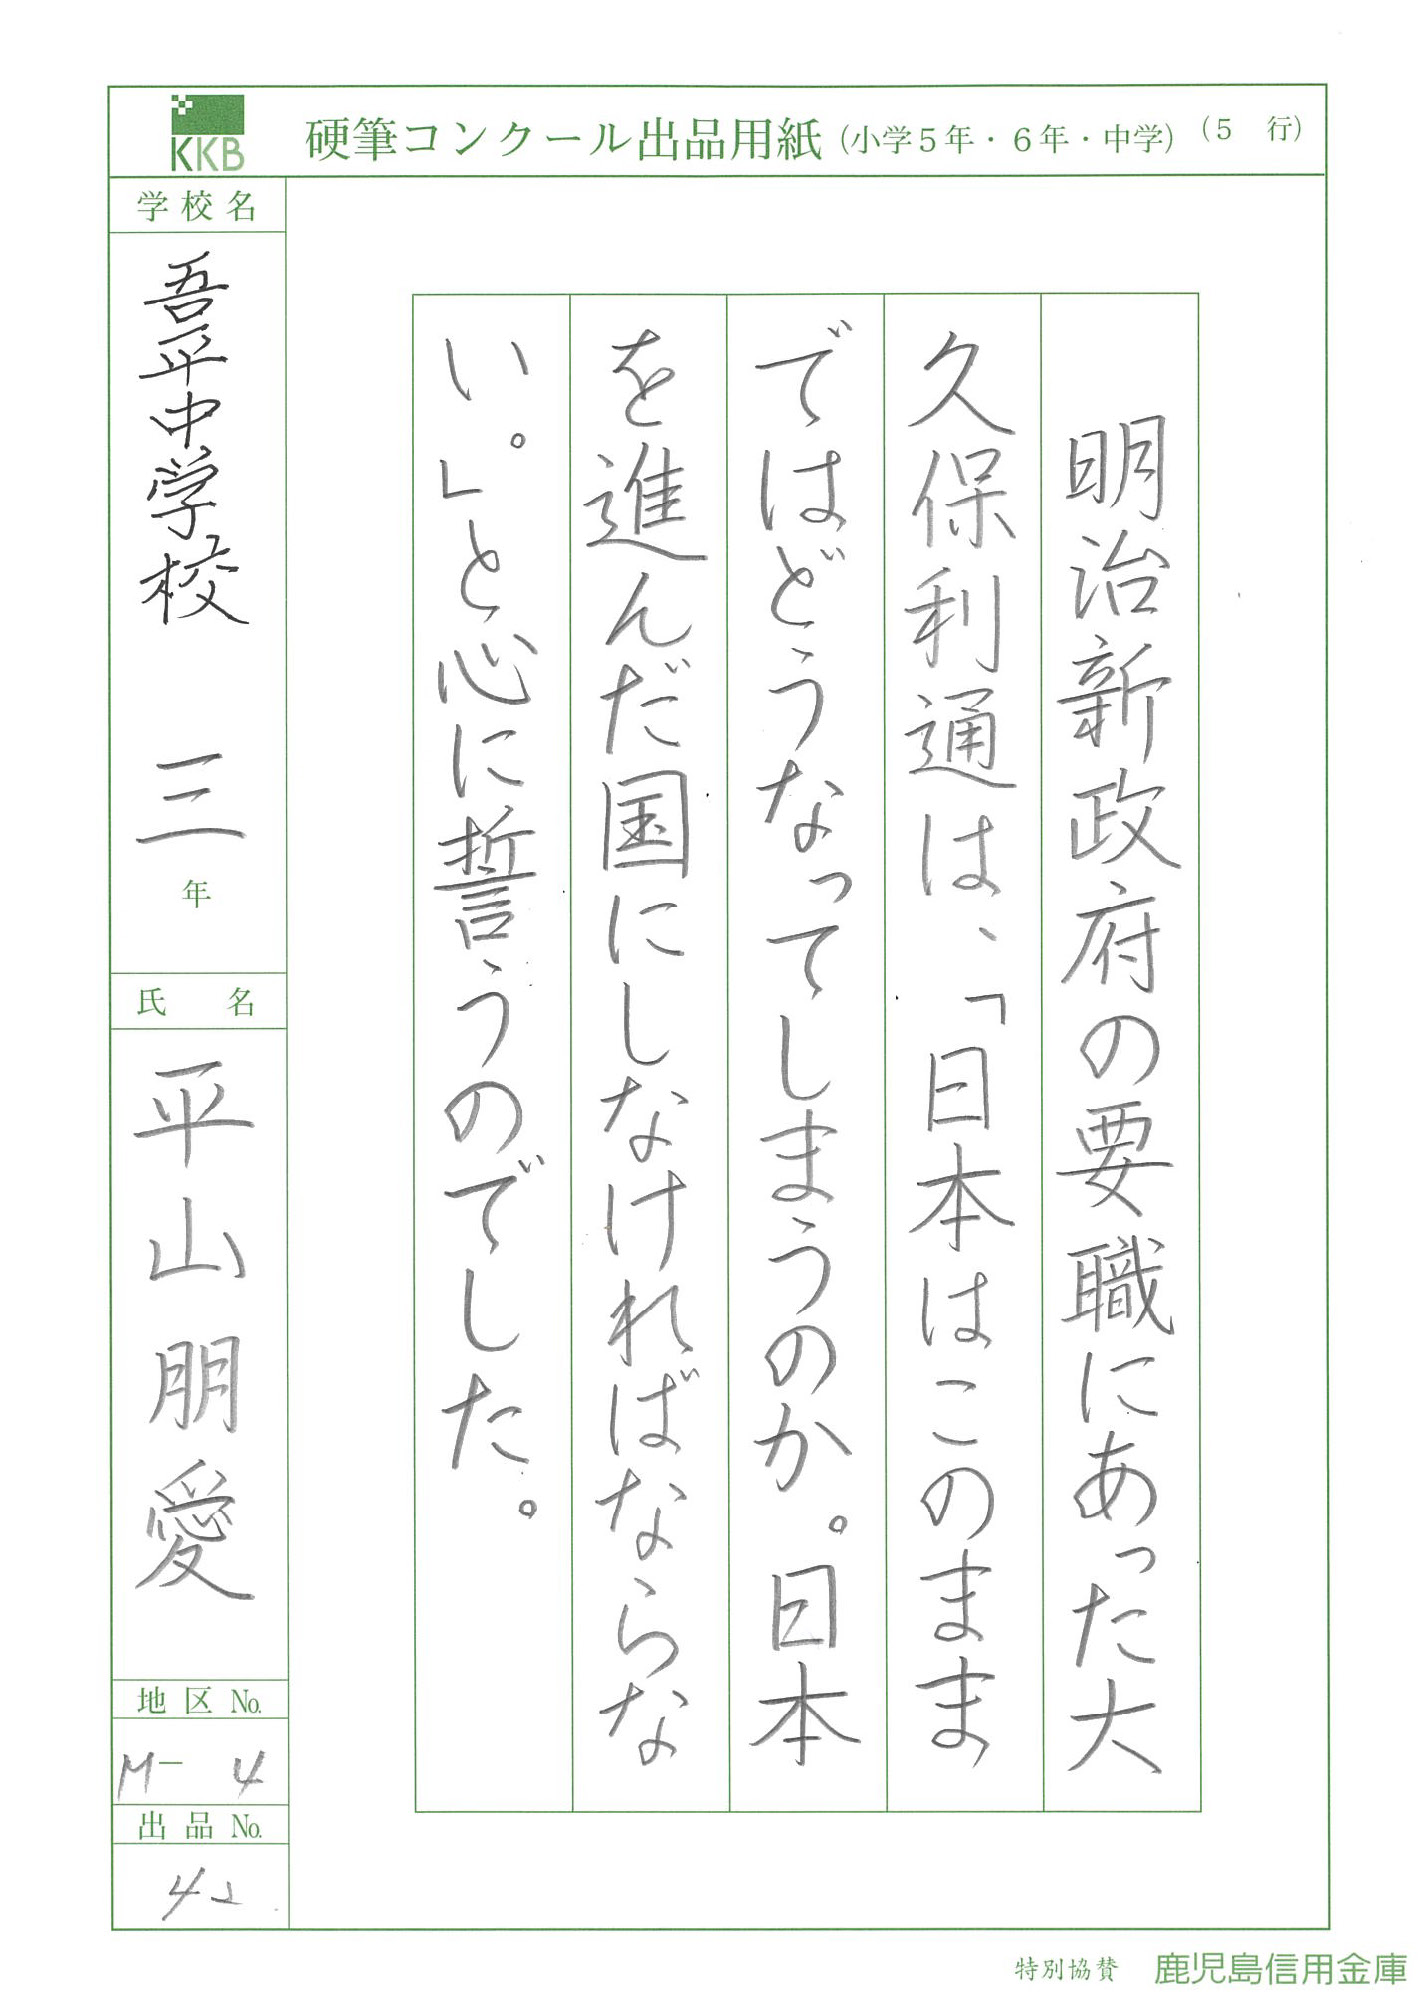 KKB
硬筆コンクール出品用紙(小学5年・6年・中学)(5 行)
明治新政府の要職にあった大
久保利通は、「日本はこのまま
ではどうなってしまうのか。日本
を進んだ国にしなければならな
い。」と心に誓うのでした。
学校名
吾平中学校 三年
氏名
平山朋愛
地区No.
M-4
出品No.
42
特別協賛 鹿児島信用金庫